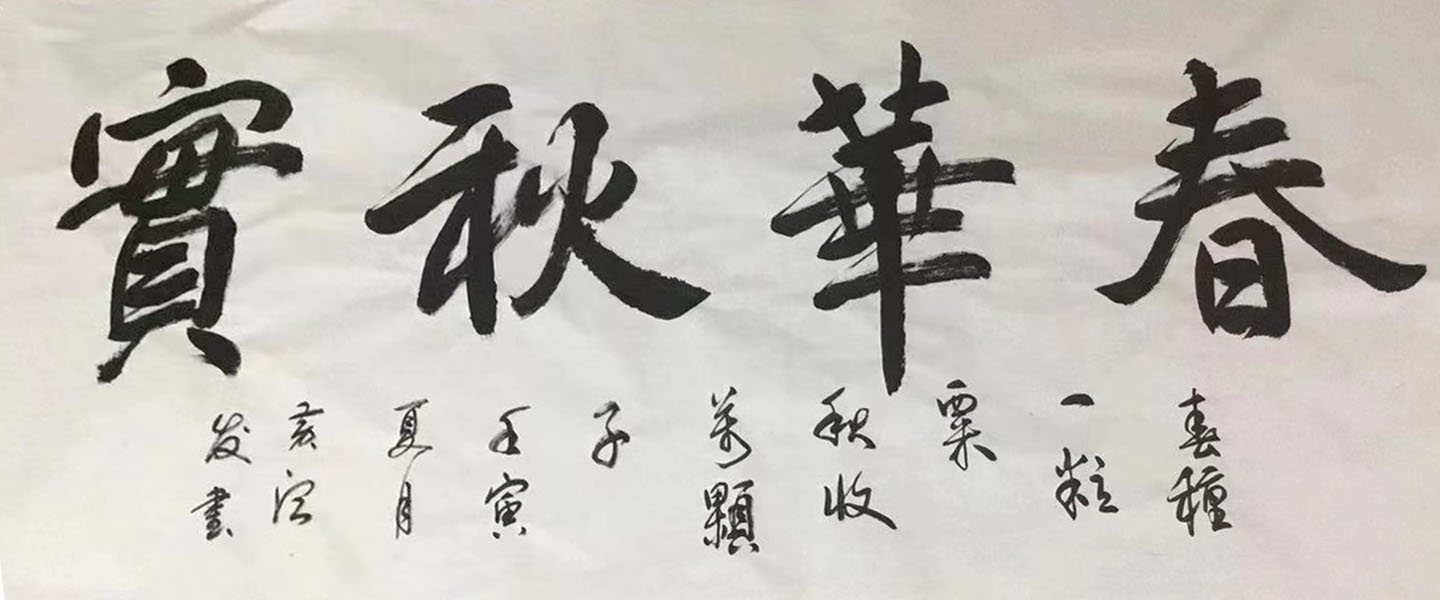 春華秋實
春種
一粒
粟
秋收
萬顆
子
壬寅
夏月
亥
发書